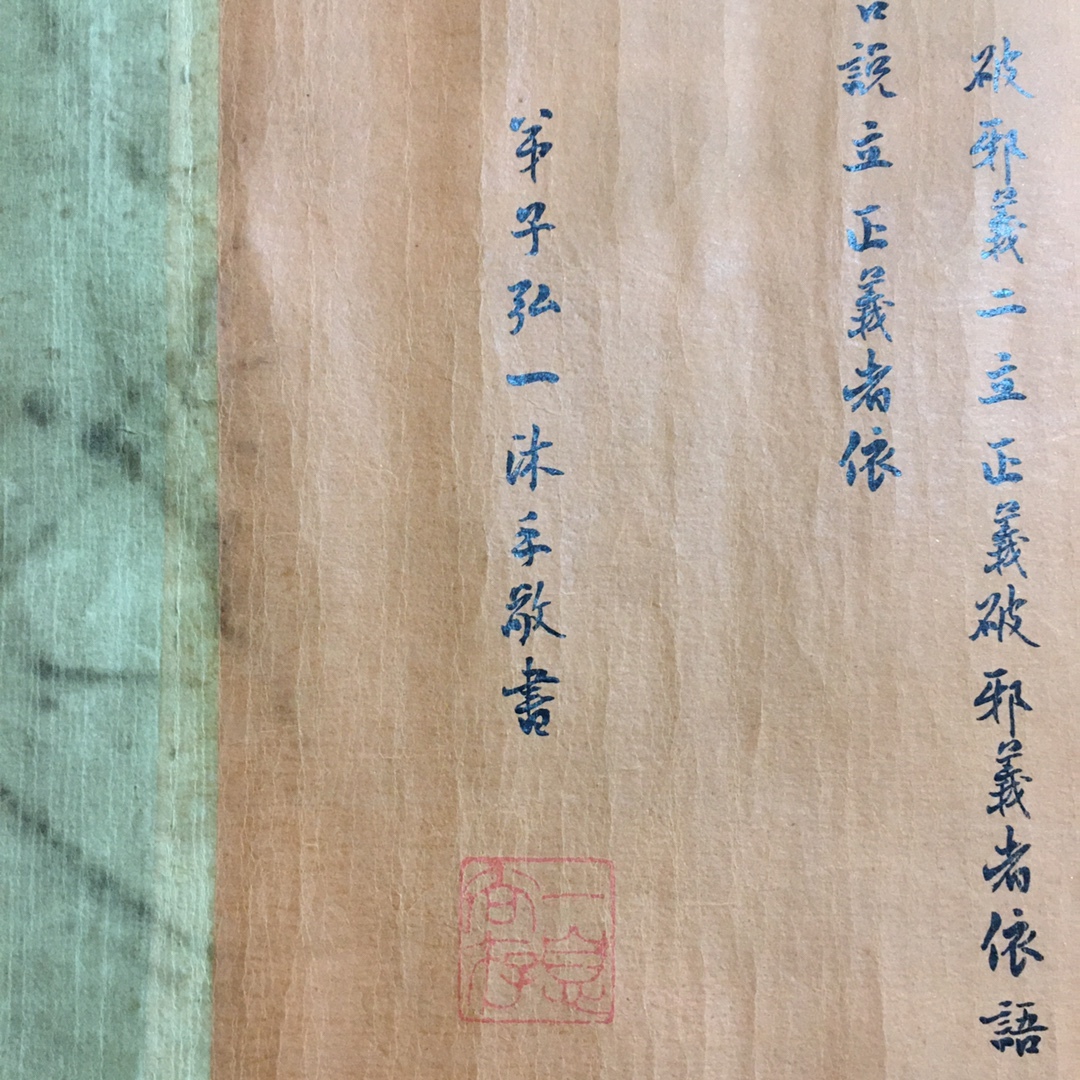 破邪義二立正義破邪義者依語
說立正義者依
弟子弘一沐手敬書
一念尚存